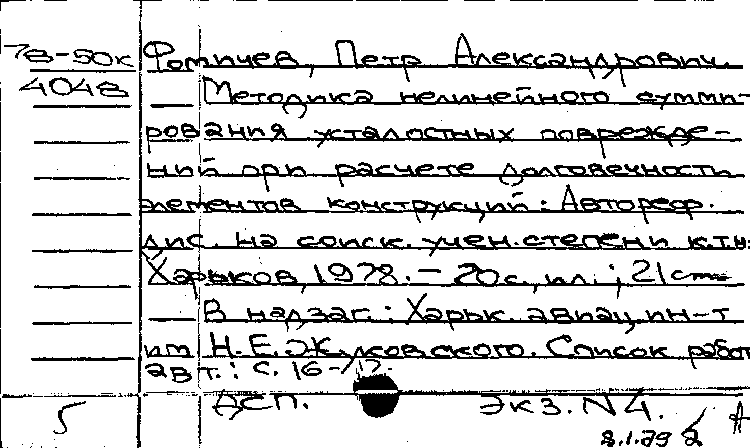 78-50к Фомичев, Петр Александрович.
4048 Методика нелинейного сумми-
рования усталостных поврежде-
ний при расчете долговечности
элементов конструкций: Автореф.
дис. на соиск. учен. степени к.т.н.
Харьков, 1978. - 20 с., ил.; 21 см
В надзаг.: Харьк. авиац. ин-т
им Н. Е. Жуковского. Список работ
авт.: с. 16-17.
5 ДСП. экз. N 4.
8.1.79